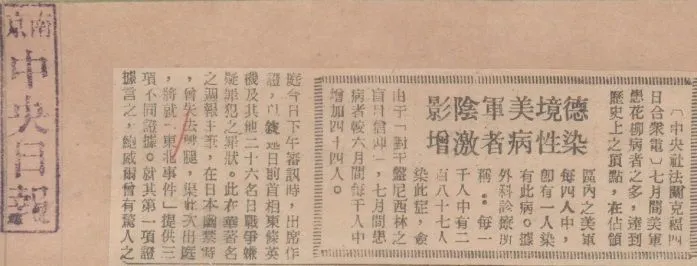 南京
中央日報
德境美軍陰影
染性病者激增
〔中央社法蘭克福四
日合衆電〕七月間美軍
患花柳病者之多，達到
歷史上之頂點，在佔領
區內之美軍
每四人中，
卽有一人染
有此病。據
外科診療所
稱：每一
千人中有二
百八十七人
染此症，僉
由于「對于盤尼西林之
盲目信仰」，七月間患
病者較六月間每千人中
增加四十四人。
庭今日下午審訊時，出席作
證，以述日前首相東條英
機及其他二十六名日戰爭嫌
疑罪犯之罪狀。此在華著名
之週報主筆，在日本國禁時
，曾失去腿，渠此次出庭
，將就「東北事件」提供三
項不同證據。就其第一項證
據言之，鮑威爾曾有驚人之